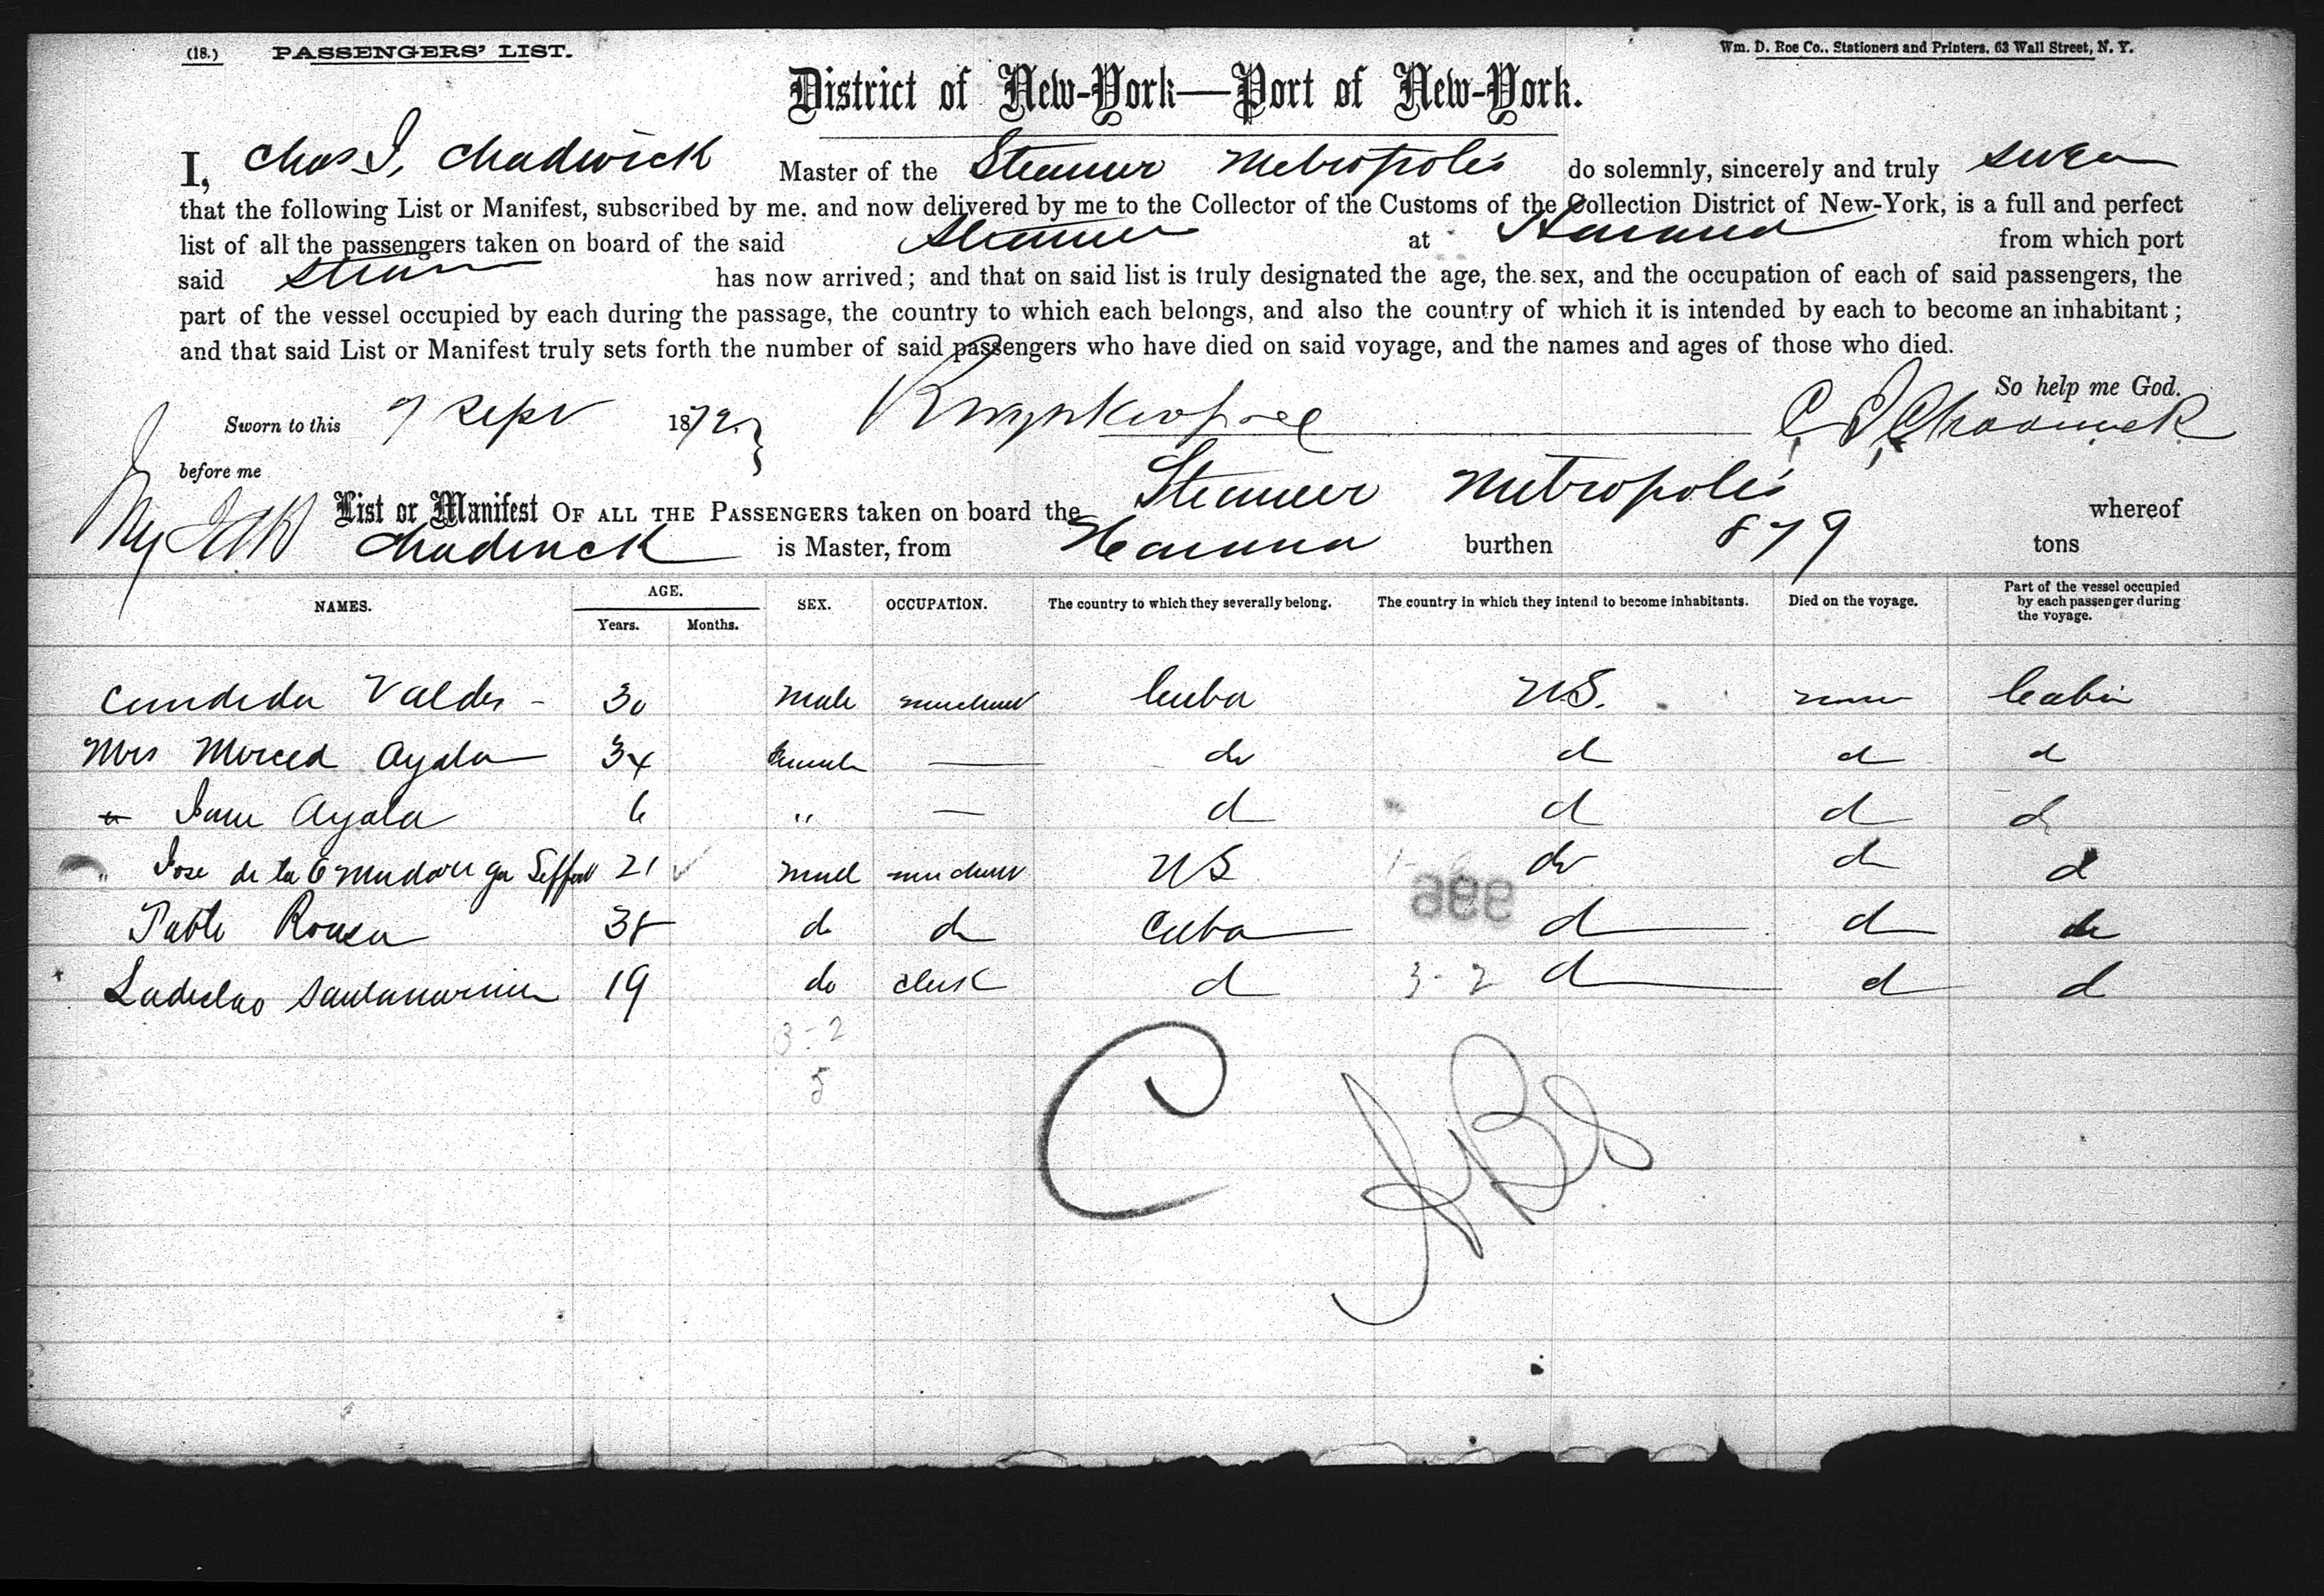 (18.) PASSENGERS' LIST. Wm. D. Roe Co., Stationers and Printers, 63 Wall Street, N. Y.
District of New-York—Port of New-York.
I, Chas I, Chadwick Master of the Steamer Metropolis do solemnly, sincerely and truly swear
that the following List or Manifest, subscribed by me, and now delivered by me to the Collector of the Customs of the Collection District of New-York, is a full and perfect
list of all the passengers taken on board of the said Steamer at Havana from which port
said Steam has now arrived; and that on said list is truly designated the age, the sex, and the occupation of each of said passengers, the
part of the vessel occupied by each during the passage, the country to which each belongs, and also the country of which it is intended by each to become an inhabitant;
and that said List or Manifest truly sets forth the number of said passengers who have died on said voyage, and the names and ages of those who died.
So help me God.
Sworn to this 7 Sept 1872 C I Chadwick
before me
List or Manifest OF ALL THE PASSENGERS taken on board the Steamer Metropolis whereof
Chadwick is Master, from Havana burthen 879 tons
NAMES. AGE. Years. Months. SEX. OCCUPATION. The country to which they severally belong. The country in which they intend to become inhabitants. Died on the voyage. Part of the vessel occupied by each passenger during the voyage.
Candida Valdes - 30 male merchant Cuba U.S. none Cabin
Mrs Merced Ayala 34 female — do d d d
" Ayala 6 " — d d d d
" Jose de la 21 male merchant US do d d
Pablo 38 do do Cuba d d do
Ladislao Santamarina 19 do clerk d 3-2 d d d
3-2
5
C